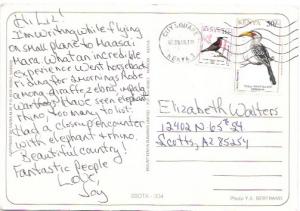 Hi Liz!
I'm writing while flying
on small plane to Maasai
Mara. What an incredible
experience. Went horseback
riding for 2 mornings. Rode
among giraffe, zebra, impala,
warthogs. Have seen elephant,
rhino, too many to list.
Had a close up encounter
with elephant & rhino.
Beautiful country!
Fantastic People
Love,
Joy
KENYA
50/-
Elizabeth Walters
12402 N 65th St
Scotts, AZ 85254
SSOTA - 334